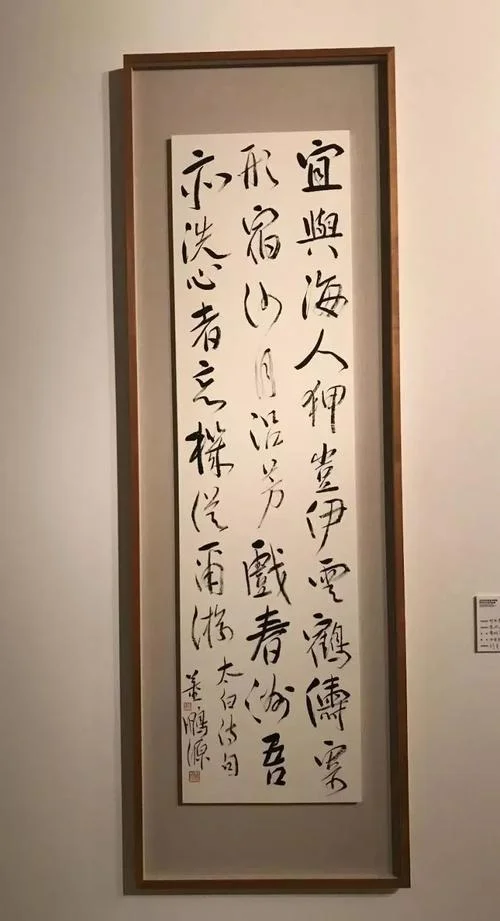 宜與海人狎豈伊雲鶴儔寄
形宿沙月沿芳戲春洲吾
亦洗心者忘機從爾游
太白詩句
董鵬源